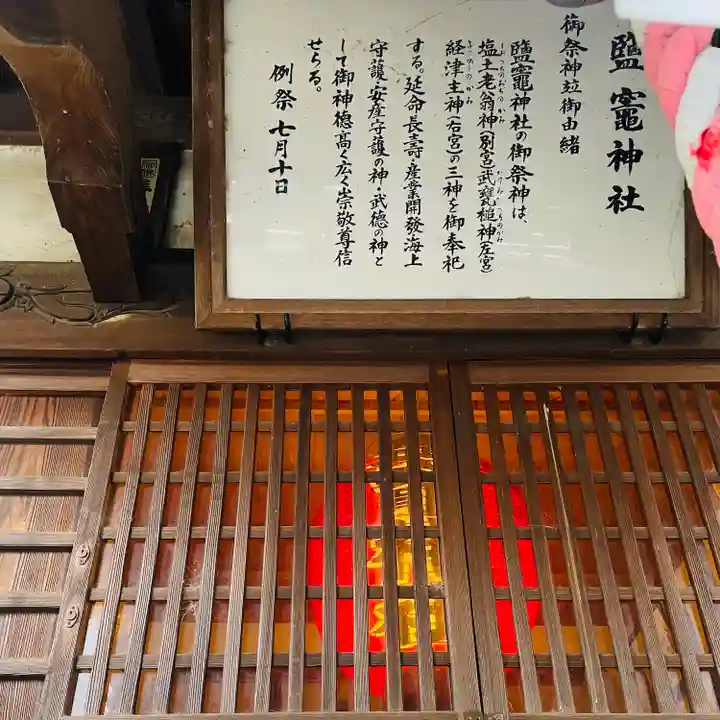 鹽竈神社
御祭神竝御由緒
鹽竈神社の御祭神は、
塩土老翁神(別宮)武甕槌神(左宮)
経津主神(右宮)の三神を御奉祀
する。延命長壽・産業開發・海上
守護・安産守護の神・武徳の神と
して御神徳高く広く崇敬尊信
せらる。
例祭 七月十日